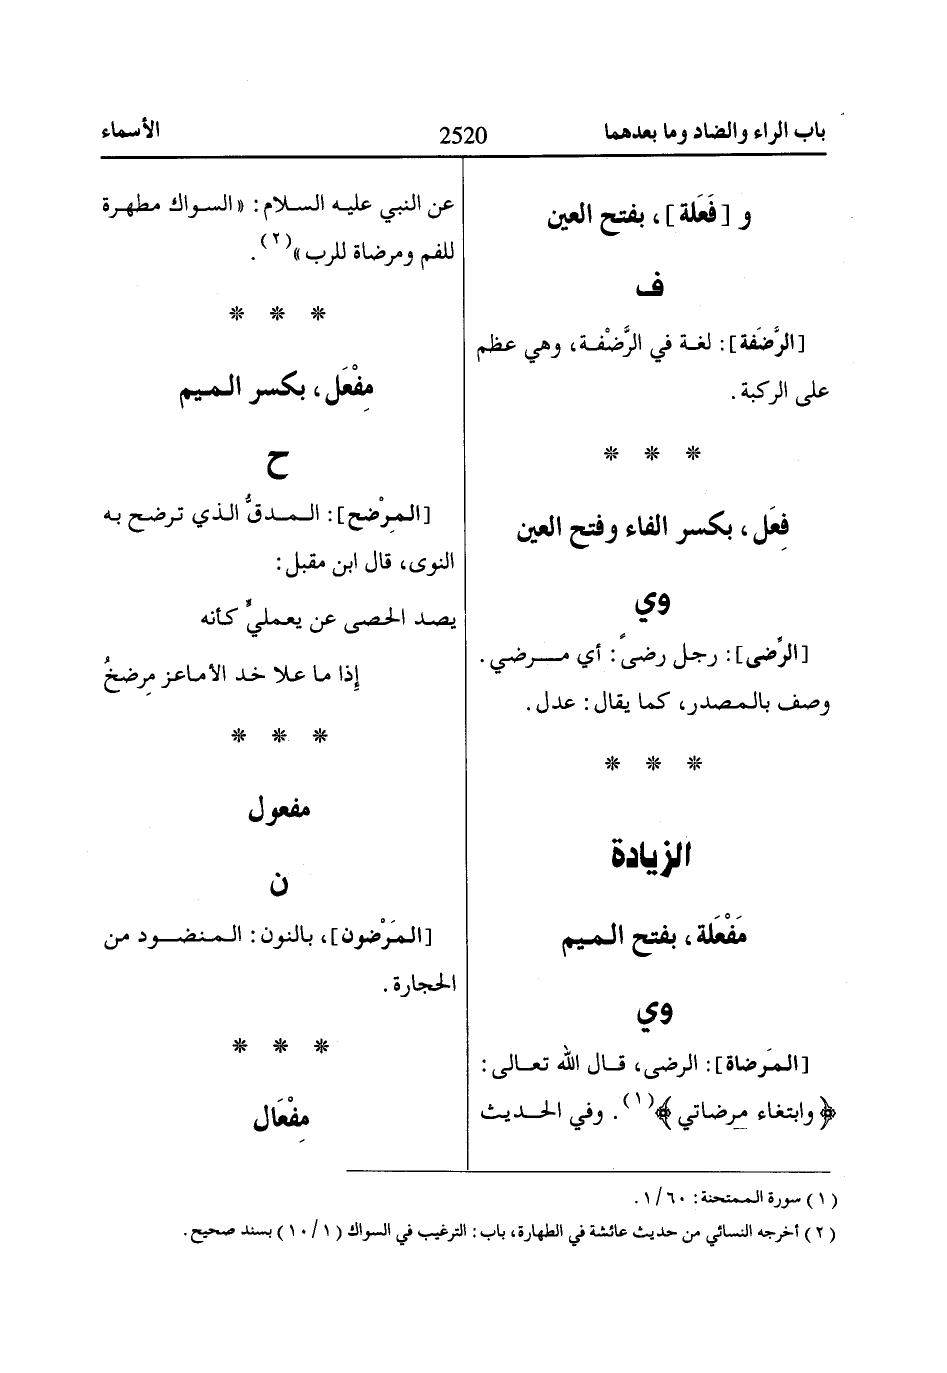 باب الراء والضاد وما بعدهما 2520 الأسماء
و [فَعَلة]، بفتح العين
ف
[الرَّضَفة]: لغة في الرَّضْفة، وهي عظم
على الركبة.
* * *
فِعَل، بكسر الفاء وفتح العين
وي
[الرِّضى]: رجل رضىً: أي مرضي.
وصف بالمصدر، كما يقال: عدل.
* * *
الزيادة
مَفْعَلة، بفتح الميم
وي
[المَرضاة]: الرضى، قال الله تعالى:
﴿وابتغاء مرضاتي﴾(١). وفي الحديث
عن النبي عليه السلام: «السواك مطهرة
للفم ومرضاة للرب»(٢).
* * *
مِفْعَل، بكسر الميم
ح
[المِرْضح]: المدقُّ الذي ترضح به
النوى، قال ابن مقبل:
يصد الحصى عن يعمليٍّ كأنه
إذا ما علا خد الأماعز مِرضحُ
* * *
مفعول
ن
[المَرْضون]، بالنون: المنضود من
الحجارة.
* * *
مِفْعَال
(١) سورة الممتحنة: ٦٠/١.
(٢) أخرجه النسائي من حديث عائشة في الطهارة، باب: الترغيب في السواك (١/١٠) بسند صحيح.